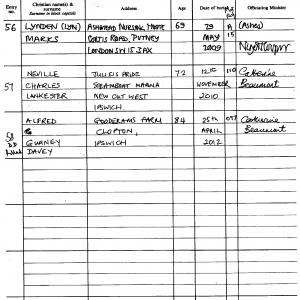 Entry no. Christian name(s) & surname Address Age Date of burial Officiating Minister
Surname in block capitals
56 LYNDEN (LYN) ASHMEAD NURSING HOME 69 29 A (Ashes)
MARKS CORTIS ROAD, PUTNEY MAY 15
LONDON SW15 3AX 2009
57 NEVILLE JULIE'S PRIDE 72 12th 110 Catherine
CHARLES STEAMBOAT MARINA NOVEMBER Beaumont
LANKESTER NEW CUT WEST 2010
IPSWICH.
58 ALFRED GOODERAMS FARM 84 25th 077 Catherine
CLOPTON, APRIL Beaumont
GURNEY IPSWICH 2012
DAVEY